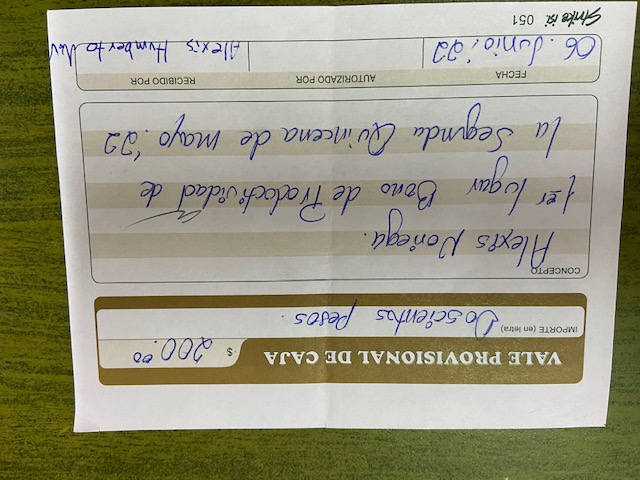 VALE PROVISIONAL DE CAJA
$ 200.00
IMPORTE (en letra) Doscientos pesos.
CONCEPTO
Alexis Noriega.
1er lugar Bono de Productividad de
la Segunda Quincena de mayo '22
FECHA AUTORIZADO POR RECIBIDO POR
06. Junio '22 Alexis Humberto
051